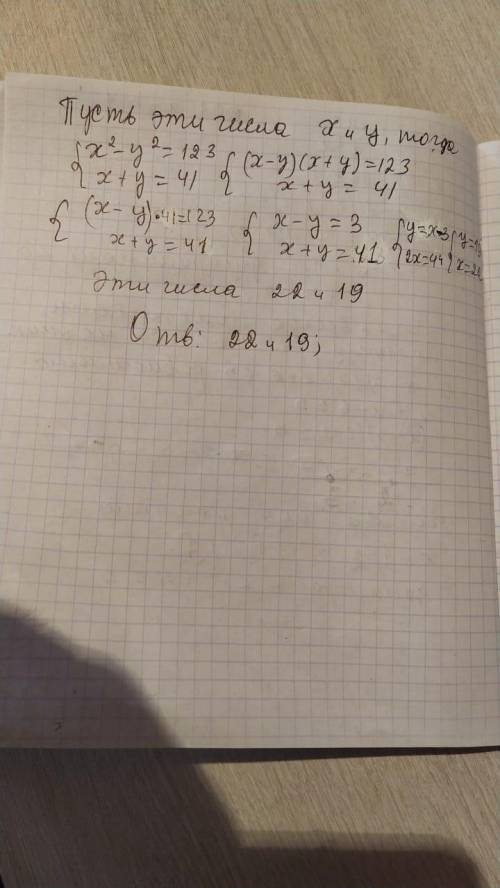 Пусть эти числа x и y, тогда
{ x² - y² = 123 { (x - y)(x + y) = 123
x + y = 41 x + y = 41
{ (x - y)·41 = 123 { x - y = 3 { y = x - 3 { y = 19
x + y = 41 x + y = 41 2x = 44 x = 22
Эти числа 22 и 19
Отв: 22 и 19;